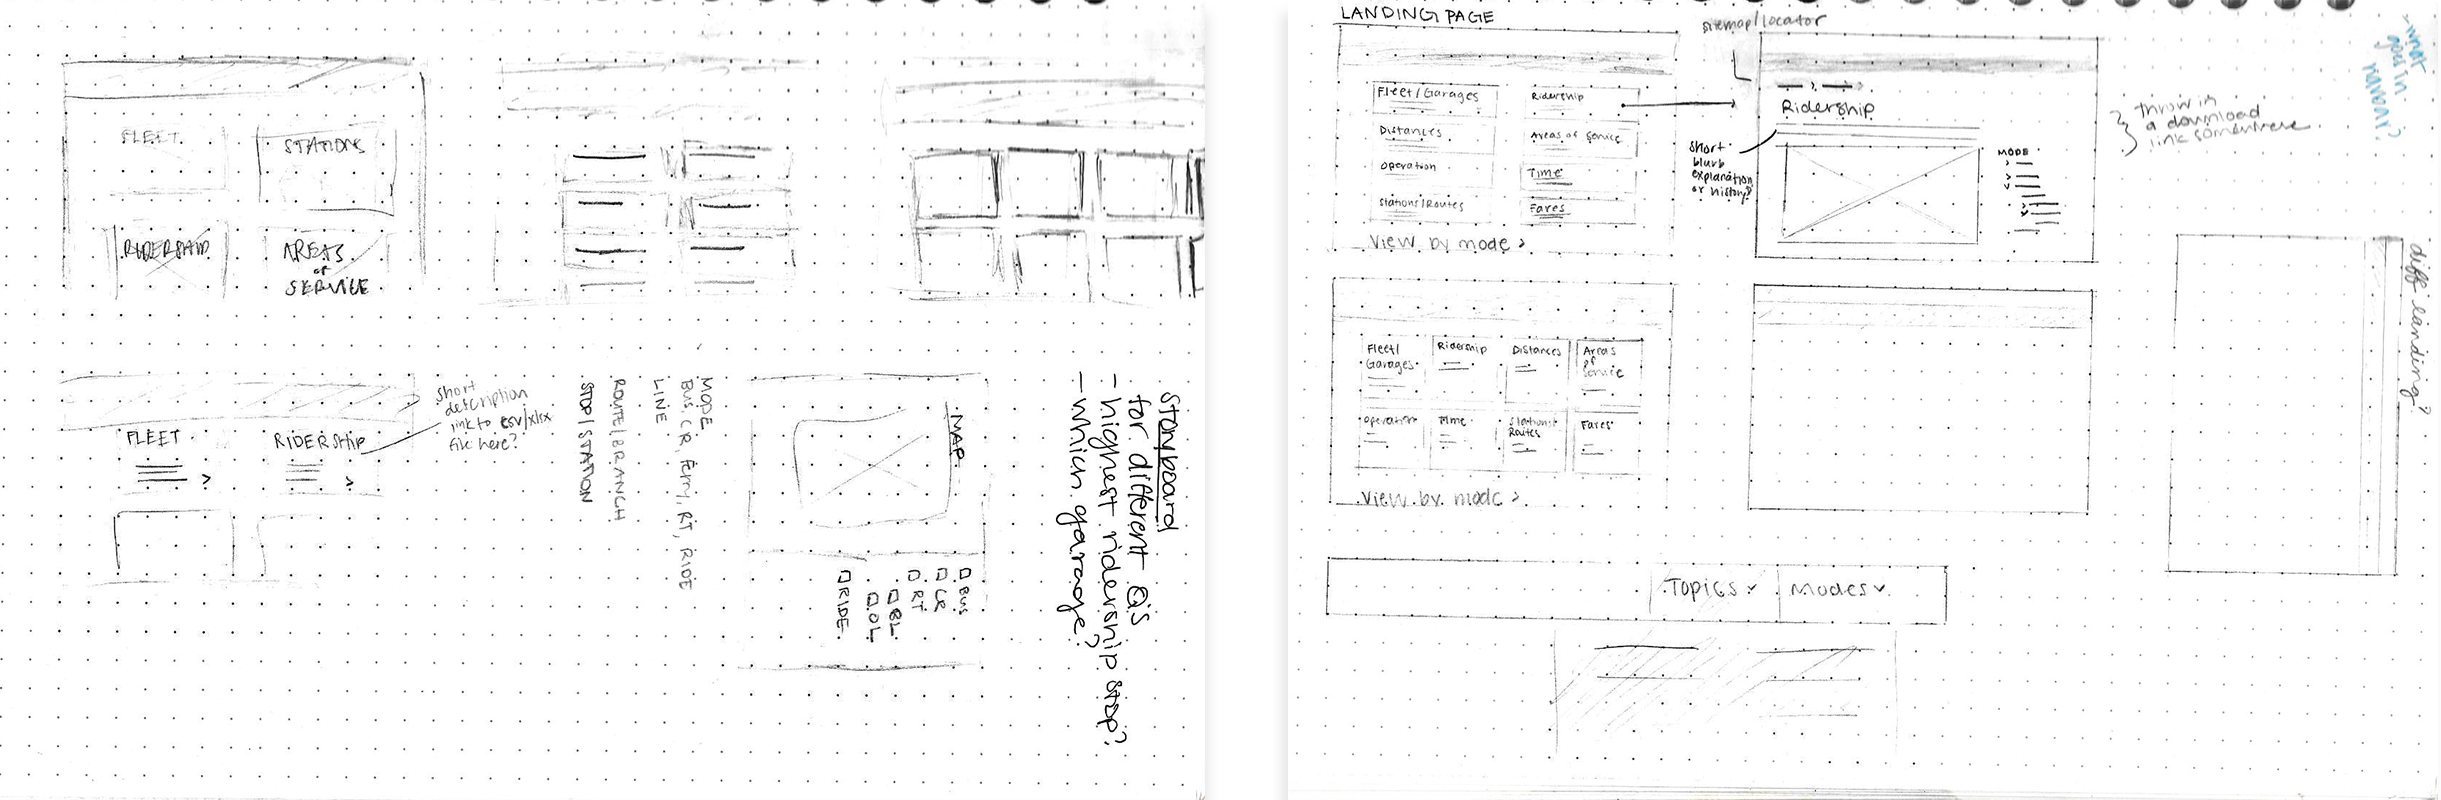 FLEET
STATIONS
RIDERSHIP
AREAS
of
SERVICE
FLEET
>
RIDERSHIP
>
short
description
link to csv/xlsx
file here?
MODE
BUS, CR, Ferry, RT, RIDE
LINE
ROUTE/BRANCH
STOP/STATION
MAP
BUS
CR
RT
BL
OL
RIDE
Storyboard
for different Q's
- highest ridership stop?
- which garage?
LANDING PAGE
Fleet/Garages
Ridership
Distances
Areas of Service
Operation
Time
Stations/Routes
Fares
View by mode >
sitemap/locator
Ridership
short
blurb
explanation
or history?
MODE
throw in
a download
link somewhere
what
goes in
navbar?
diff landing?
Fleet/
Garages
Ridership
Distances
Areas
of
Service
Operation
Time
Stations/
Routes
Fares
View by mode >
Topics
Modes